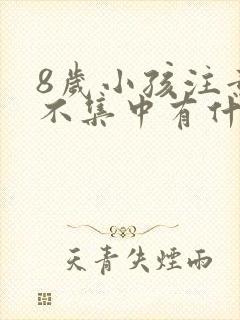 8歲小孩注
不集中有什
天青失煙雨